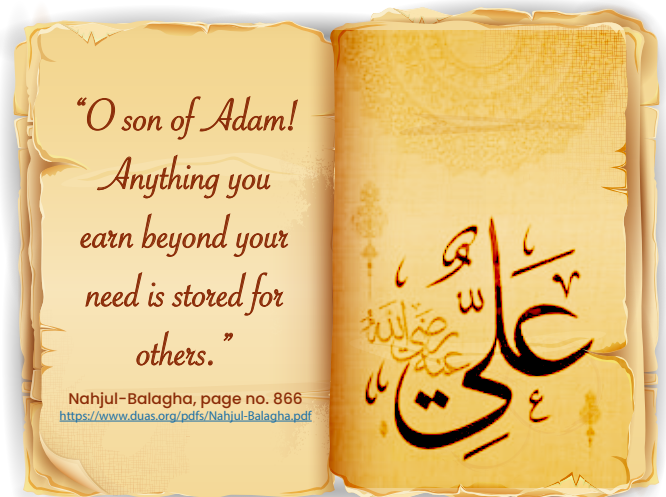 “O son of Adam!
Anything you
earn beyond your
need is stored for
others.”
Nahjul-Balagha, page no. 866
https://www.duas.org/pdfs/Nahjul-Balagha.pdf
عَلِيّ
رضي الله
عنه